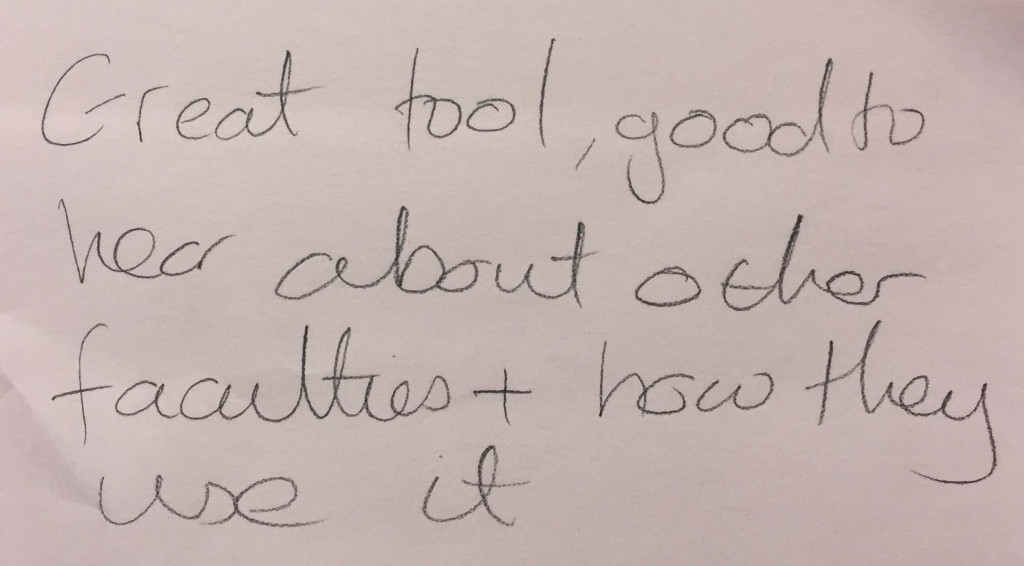 Great tool, good to
hear about other
faculties + how they
use it